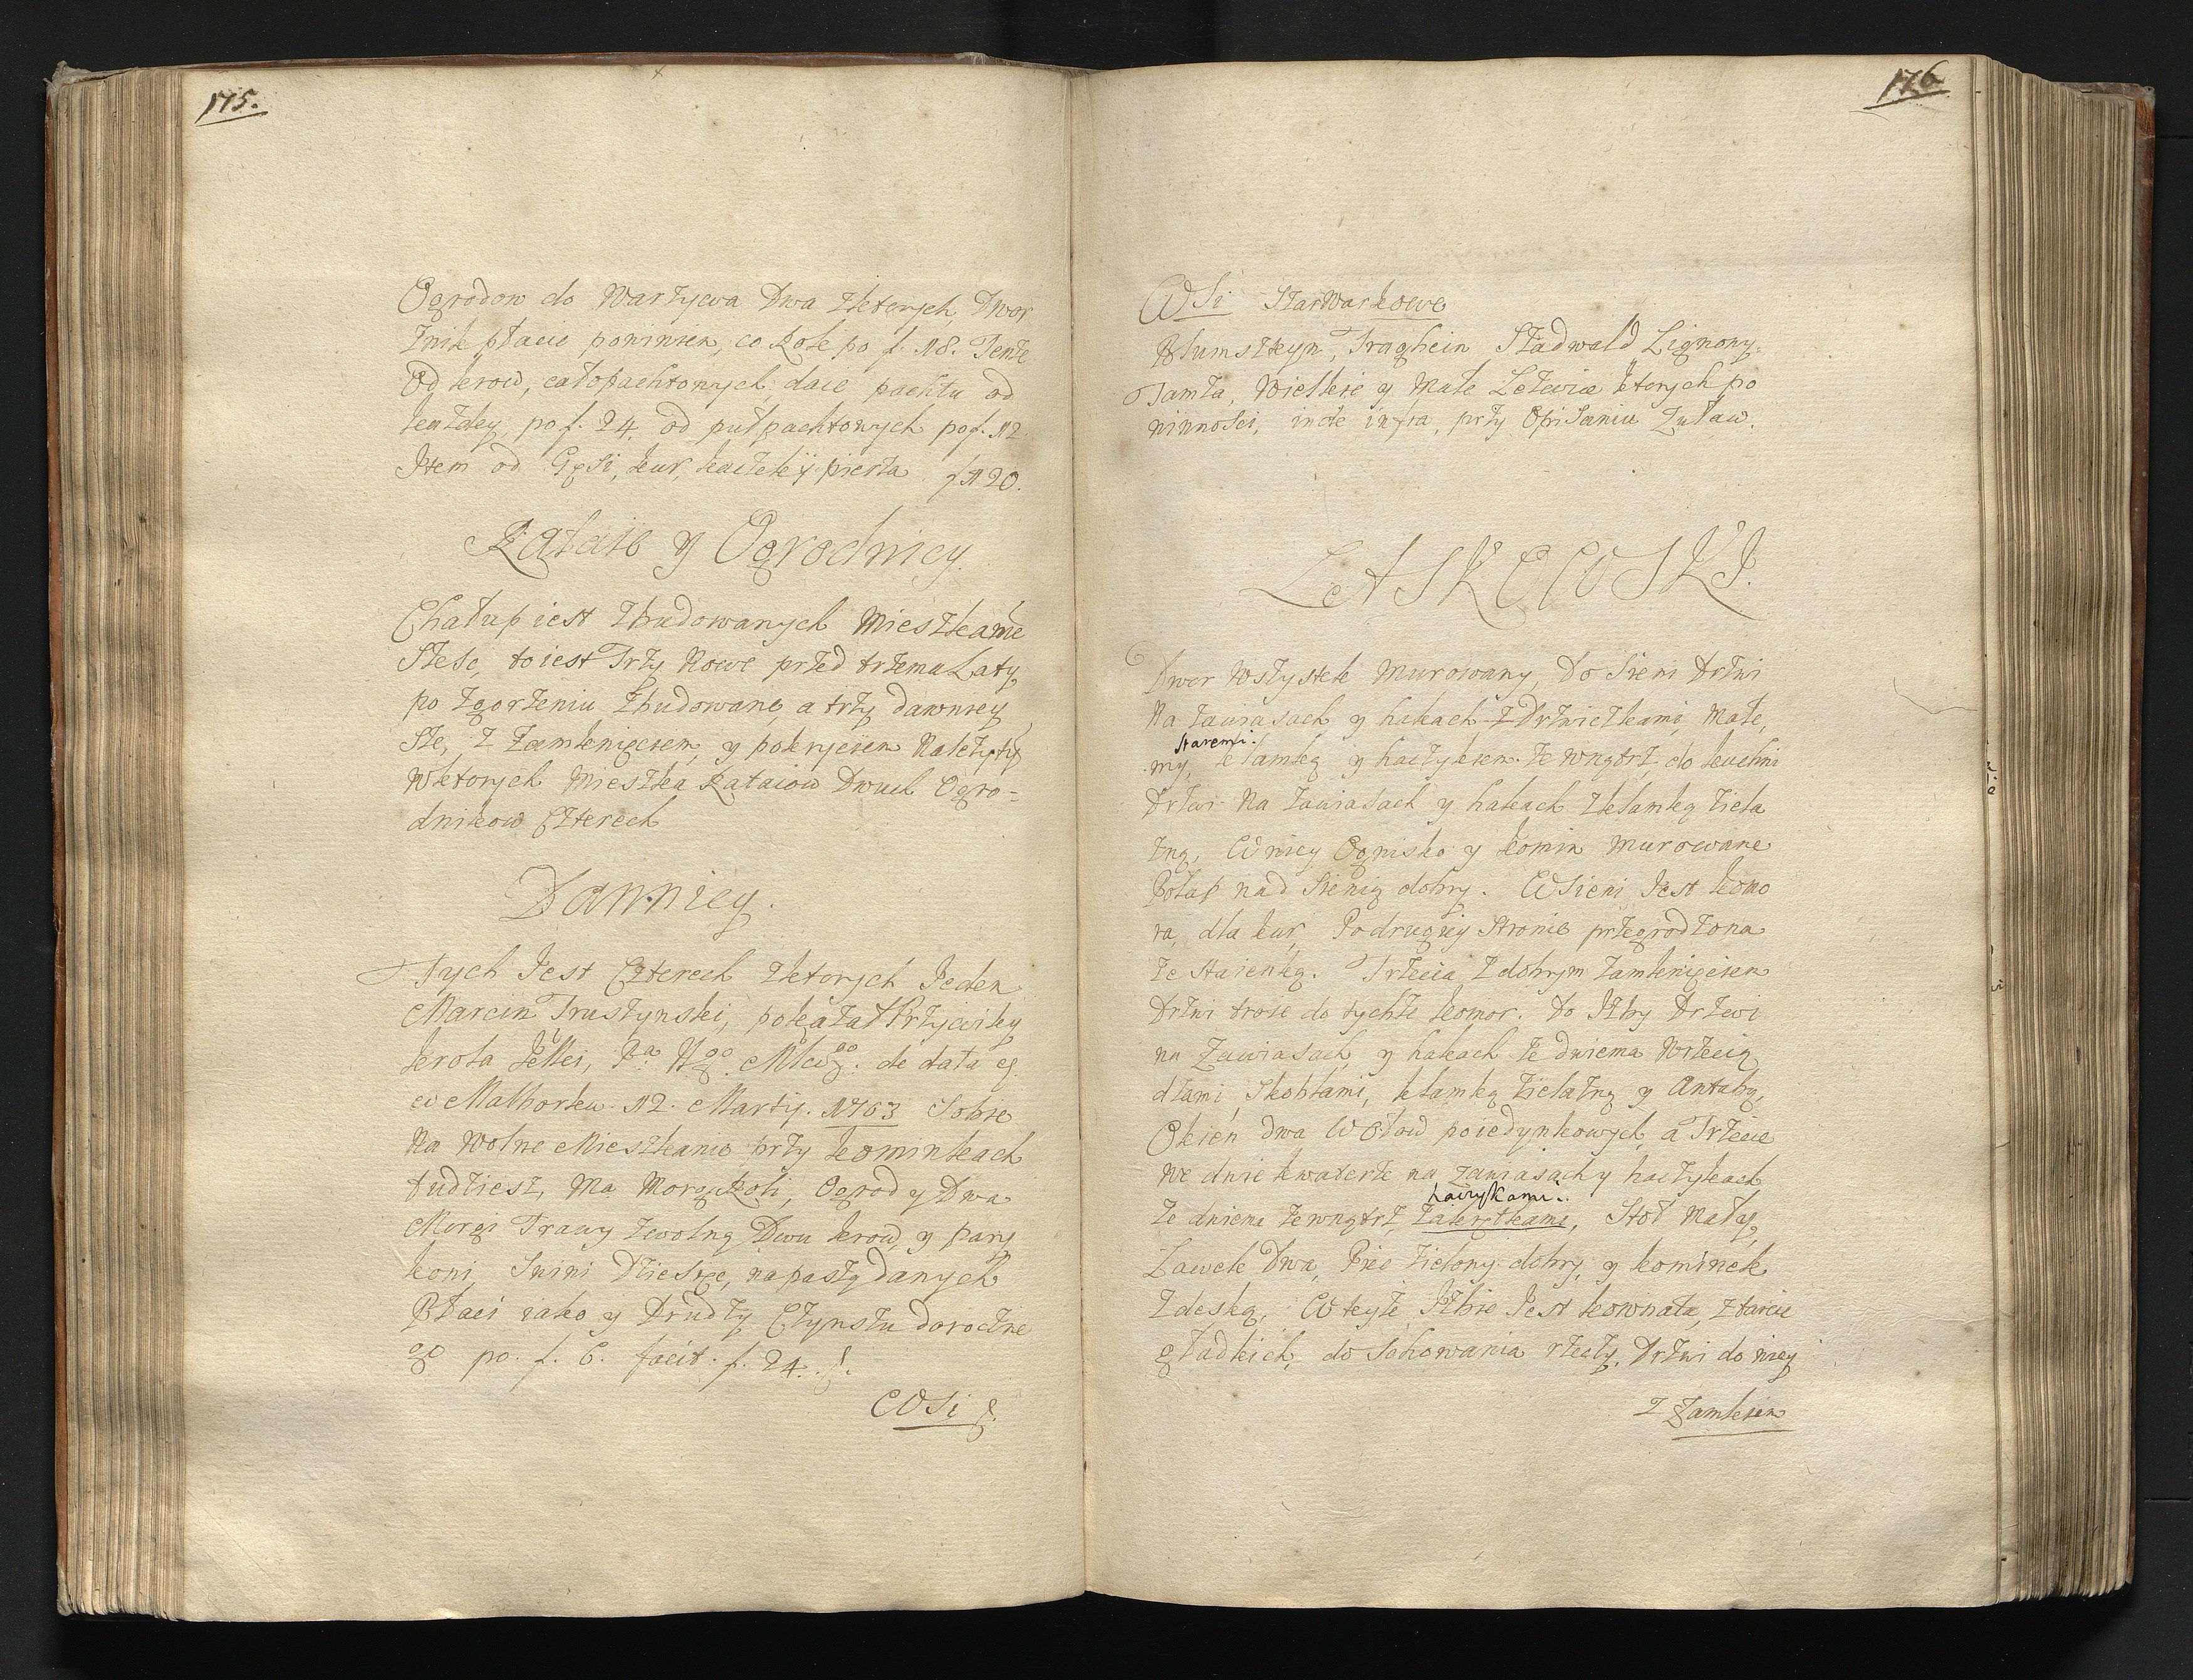 175.
Ogrodow do Warzywa Dwa zktorych Dwor
znik płacic powinien, co Rok po f. 18. Tenże
Od krow, całopachtowych, daie pachtu od
każdey po f. 24. od pułpachtowych po f. 12.
Item od Gęsi, kur, kaczek y pierza f 120.
Rataie y Ogrodnicy.
Chałup iest zbudowanych Mieszkanie
Szesc, to iest Trzy Nowe przed trzema Laty
po zgorzeniu zbudowane, a trzy dawniey
sze, z Zamknięciem y pokryciem Należytym
Wktorych Mieszka Rataiow Dwuch Ogro-
dnikow Czterech
Dannicy.
Tych Iest Czterech zktorych Ieden
Marcin Truszynski, pokazał Przywiley
krola IeMci, Pa Ngo Młcgo. de data
w Malborku 12. Martij. 1703 Sobie
Na Wolne Mieszkanie przy kominkach
tudziesz, Ma Morgę Roli, Ogrod y Dwa
Morgi Trawy zwolną Dwu krow, y pary
koni, Swini Dziesięc, na paszą danych
Płaci iako y Drudzy Czynszu doroczne
go po. f. 6. facit. f. 24.
WSi
176
WSi Szarwarkowe
Blumsztyn, Traghein Stadwald Lignowy.
Tamta, Wielkie y Małe Letwie ktorych po
winnosci, inde infra, przy Opisaniu Zuław.
LASKOWSKI.
Dwor Wszystek Murowany, Do Sieni Drzwi
Na zawiasach y hakach z Drzwiczkami Małe,
Staremi.
my, klamką y haczykiem ze wnątrz, do kuchni
Drzwi Na zawiasach y hakach zklamką żela
zną, Wniey Ognisko y komin murowane
Pułap nad Sienią dobry. WSieni Iest komo
ra, dla kur, Po drugiey stronie przegrodzona
ze staienką. Trzecia z dobrym zamknięciem
Drzwi troie do tychże komor. Do Izby Drzwi
na Zawiasach y hakach ze dwiema Wrzecią
dzami, Skoblami, klamką żielazną y Antabą,
Okien dwa WOłow poiedynkowych, a Trzecie
We dwie kwaterze na zawiasach y haczykach
haczykami.
ze dwiema zewnątrz zakrętkami, Stoł Mały,
Ławek Dwa, Piec zielony dobry, y kominek
Z deską, W teyże Izbie Iest kownata, z tarcic
gładkich, do Schowania rzeczy. Drzwi do niey
z Zamkiem